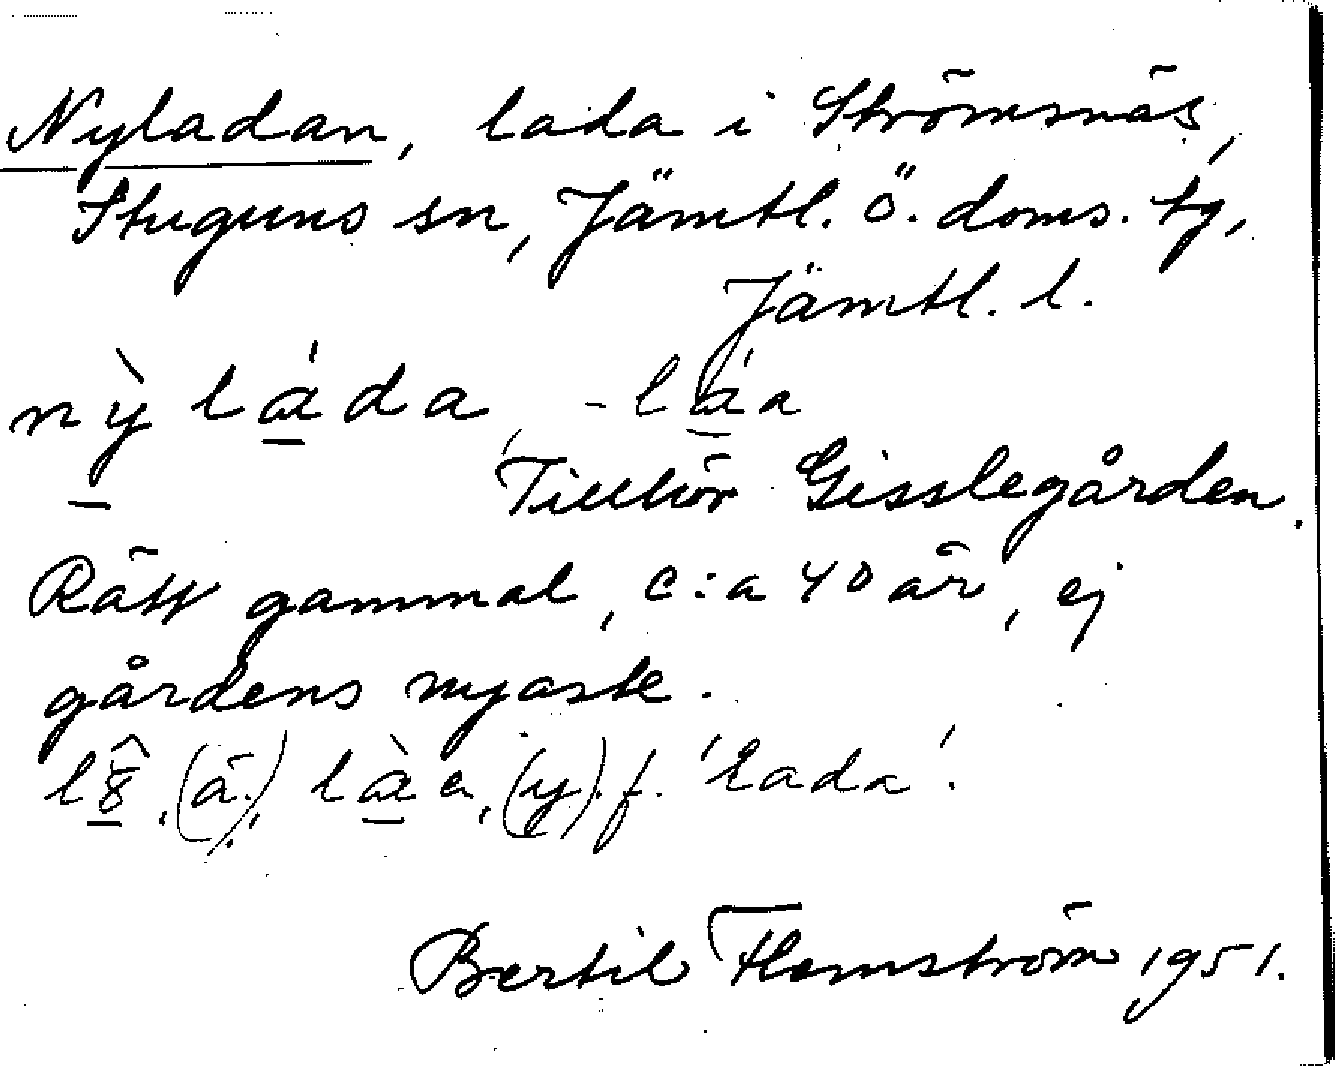 Nyladan, lada i Strömsnäs,
Stuguns sn, Jämtl. ö. doms. tg,
Jämtl. l.
nỳ láda, -láa
Tillhör Gisslegården.
Rätt gammal, c:a 40 år, ej
gårdens nyaste.
(y). f. 'lada'.
Bertil Flemström 1951.